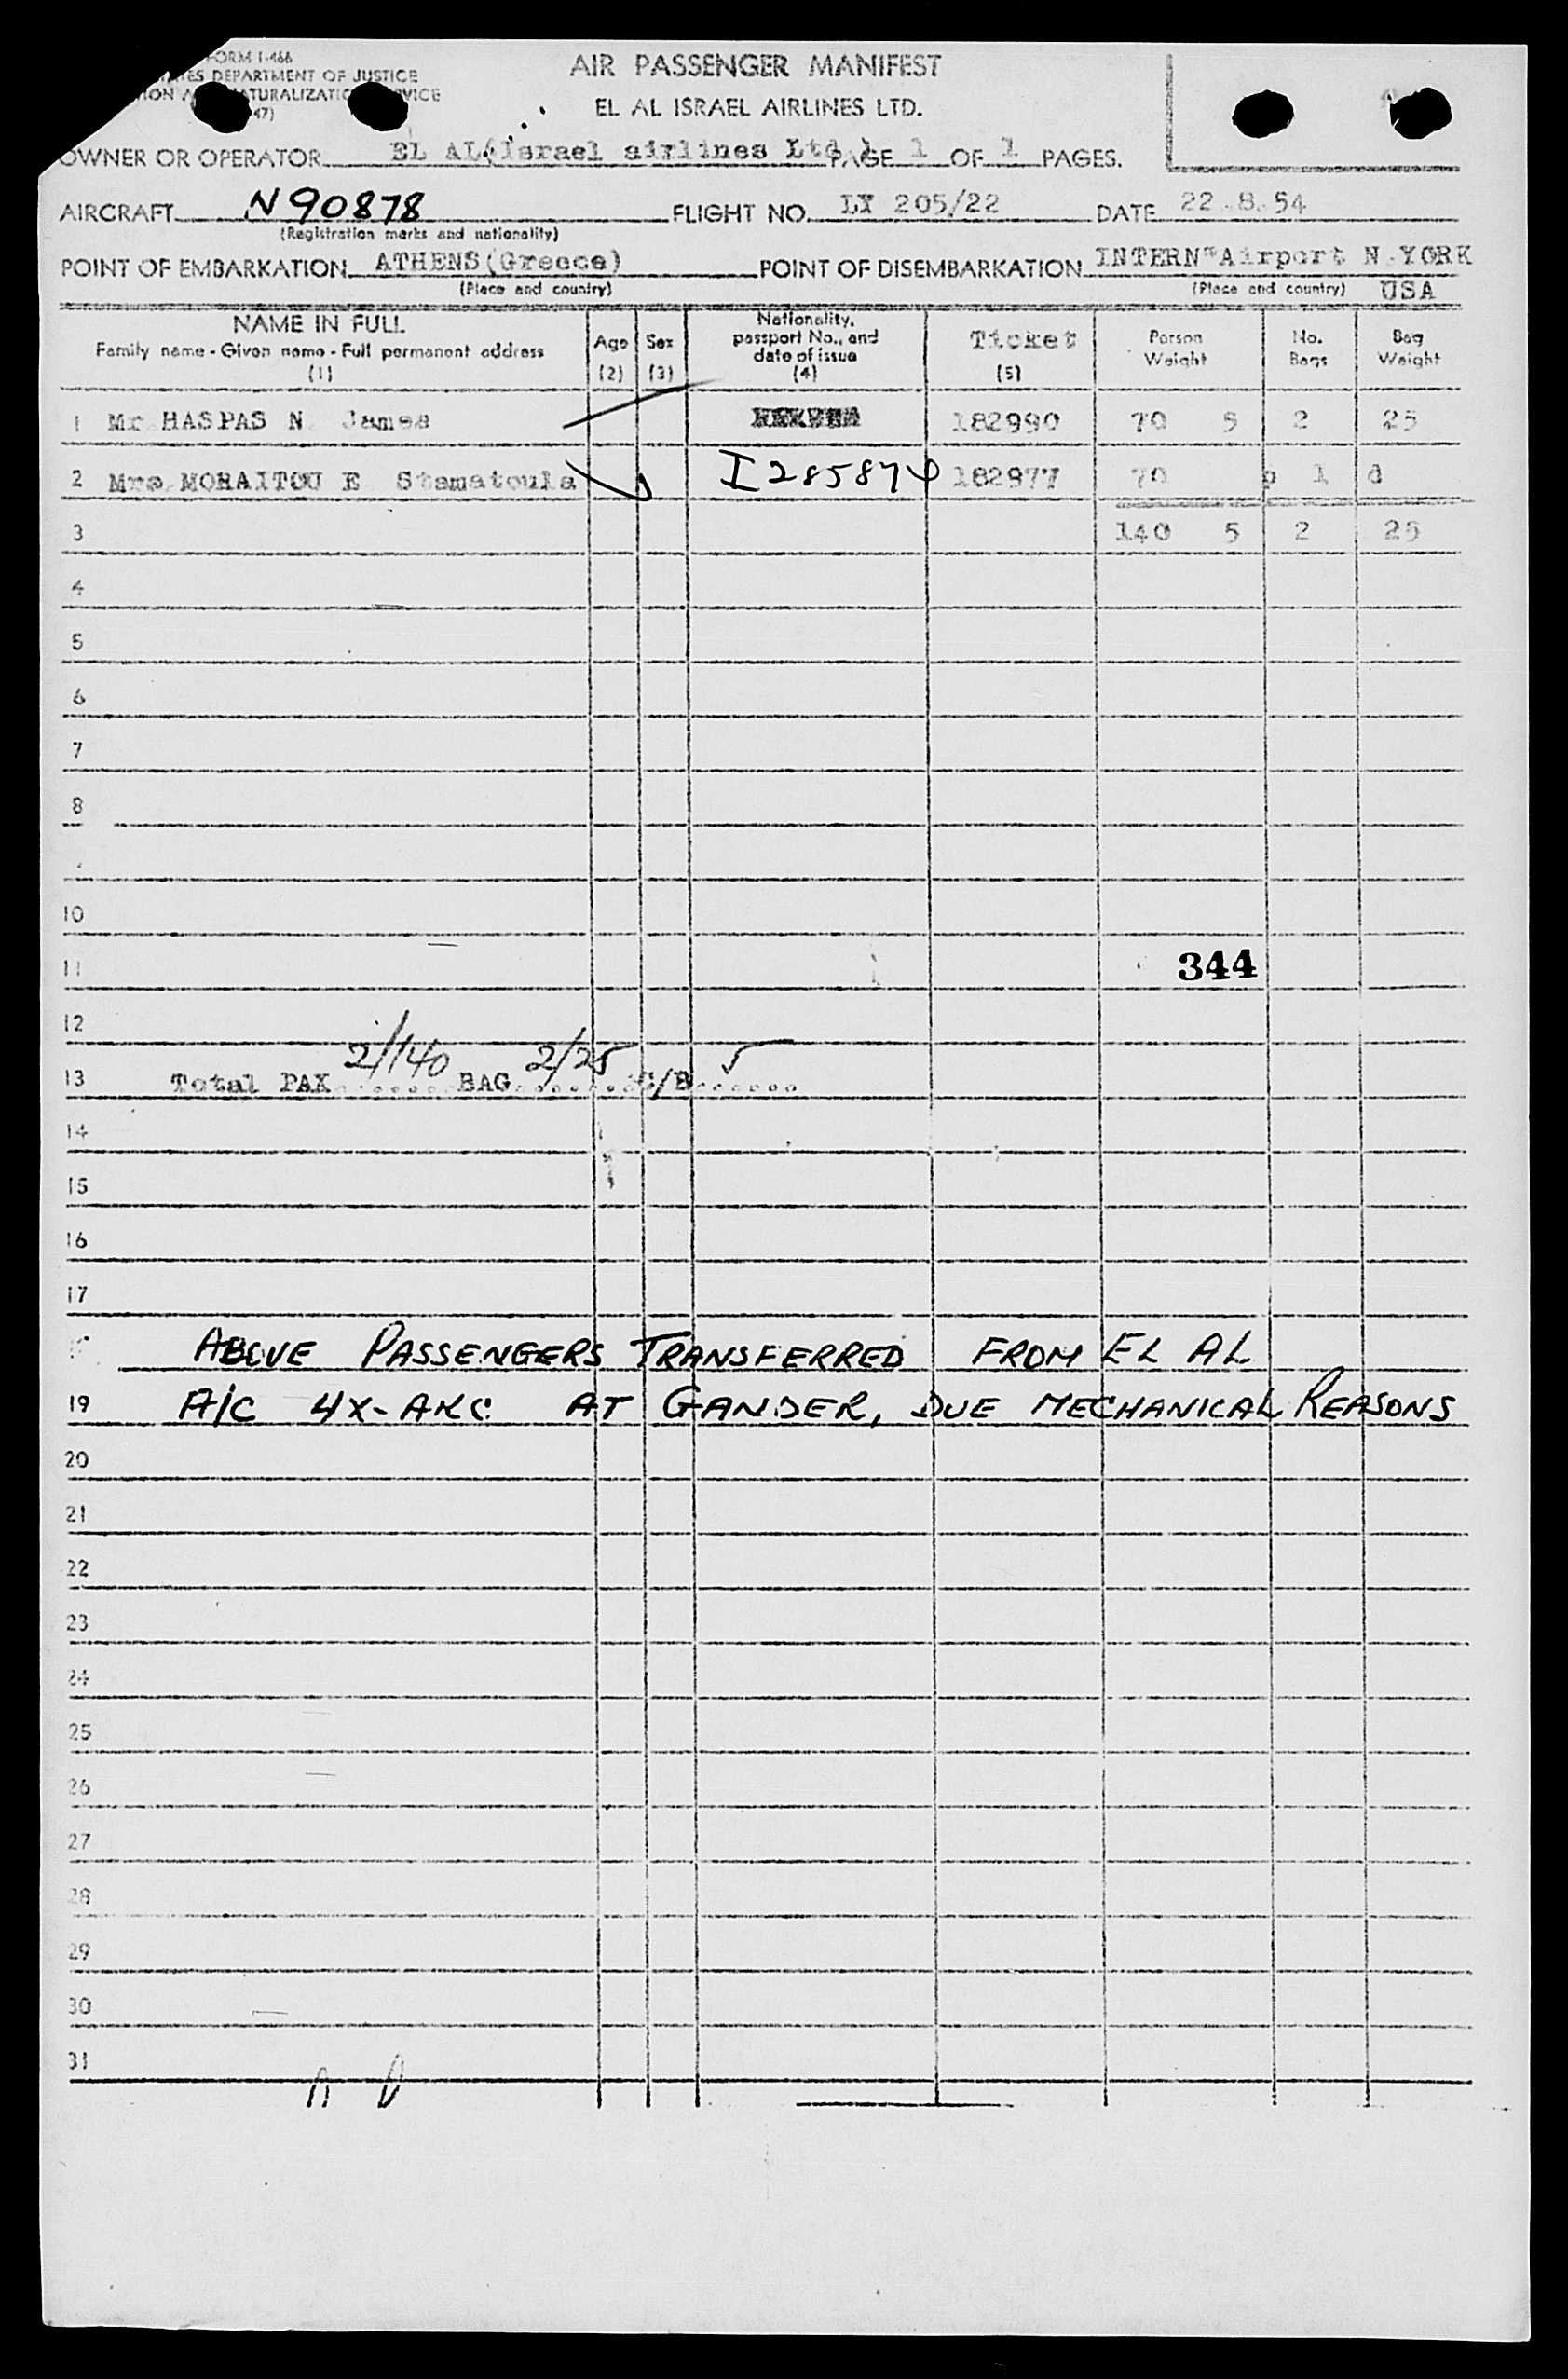 FORM I-466
AIR PASSENGER MANIFEST
DEPARTMENT OF JUSTICE
EL AL ISRAEL AIRLINES LTD.
47)
OWNER OR OPERATOR EL AL(Israel airlines Ltd.) PAGE 1 OF 1 PAGES.
AIRCRAFT N90878 FLIGHT NO. LY 205/22 DATE 22.8.54
(Registration marks and nationality)
POINT OF EMBARKATION ATHENS(Greece) POINT OF DISEMBARKATION INTERN Airport N.YORK
(Place and country) (Place and country) USA
NAME IN FULL Age Sex Nationality, passport No., and date of issue Ticket Person Weight No. Bags Bag Weight
Family name - Given name - Full permanent address
(1) (2) (3) (4) (5)
1 Mr HASPAS N. James 182990 70 5 2 25
2 Mrs MORAITOU E Stamatoula I285874 182977 70 p 1 d
3 140 5 2 25
4
5
6
7
8
10
11 344
12
13 Total PAX 2/140 BAG 2/25 /B 5
14
15
16
17
ABOVE PASSENGERS TRANSFERRED FROM EL AL
19 A/C 4X-AKC AT GANDER, DUE MECHANICAL REASONS
20
21
22
23
24
25
26
27
28
29
30
31